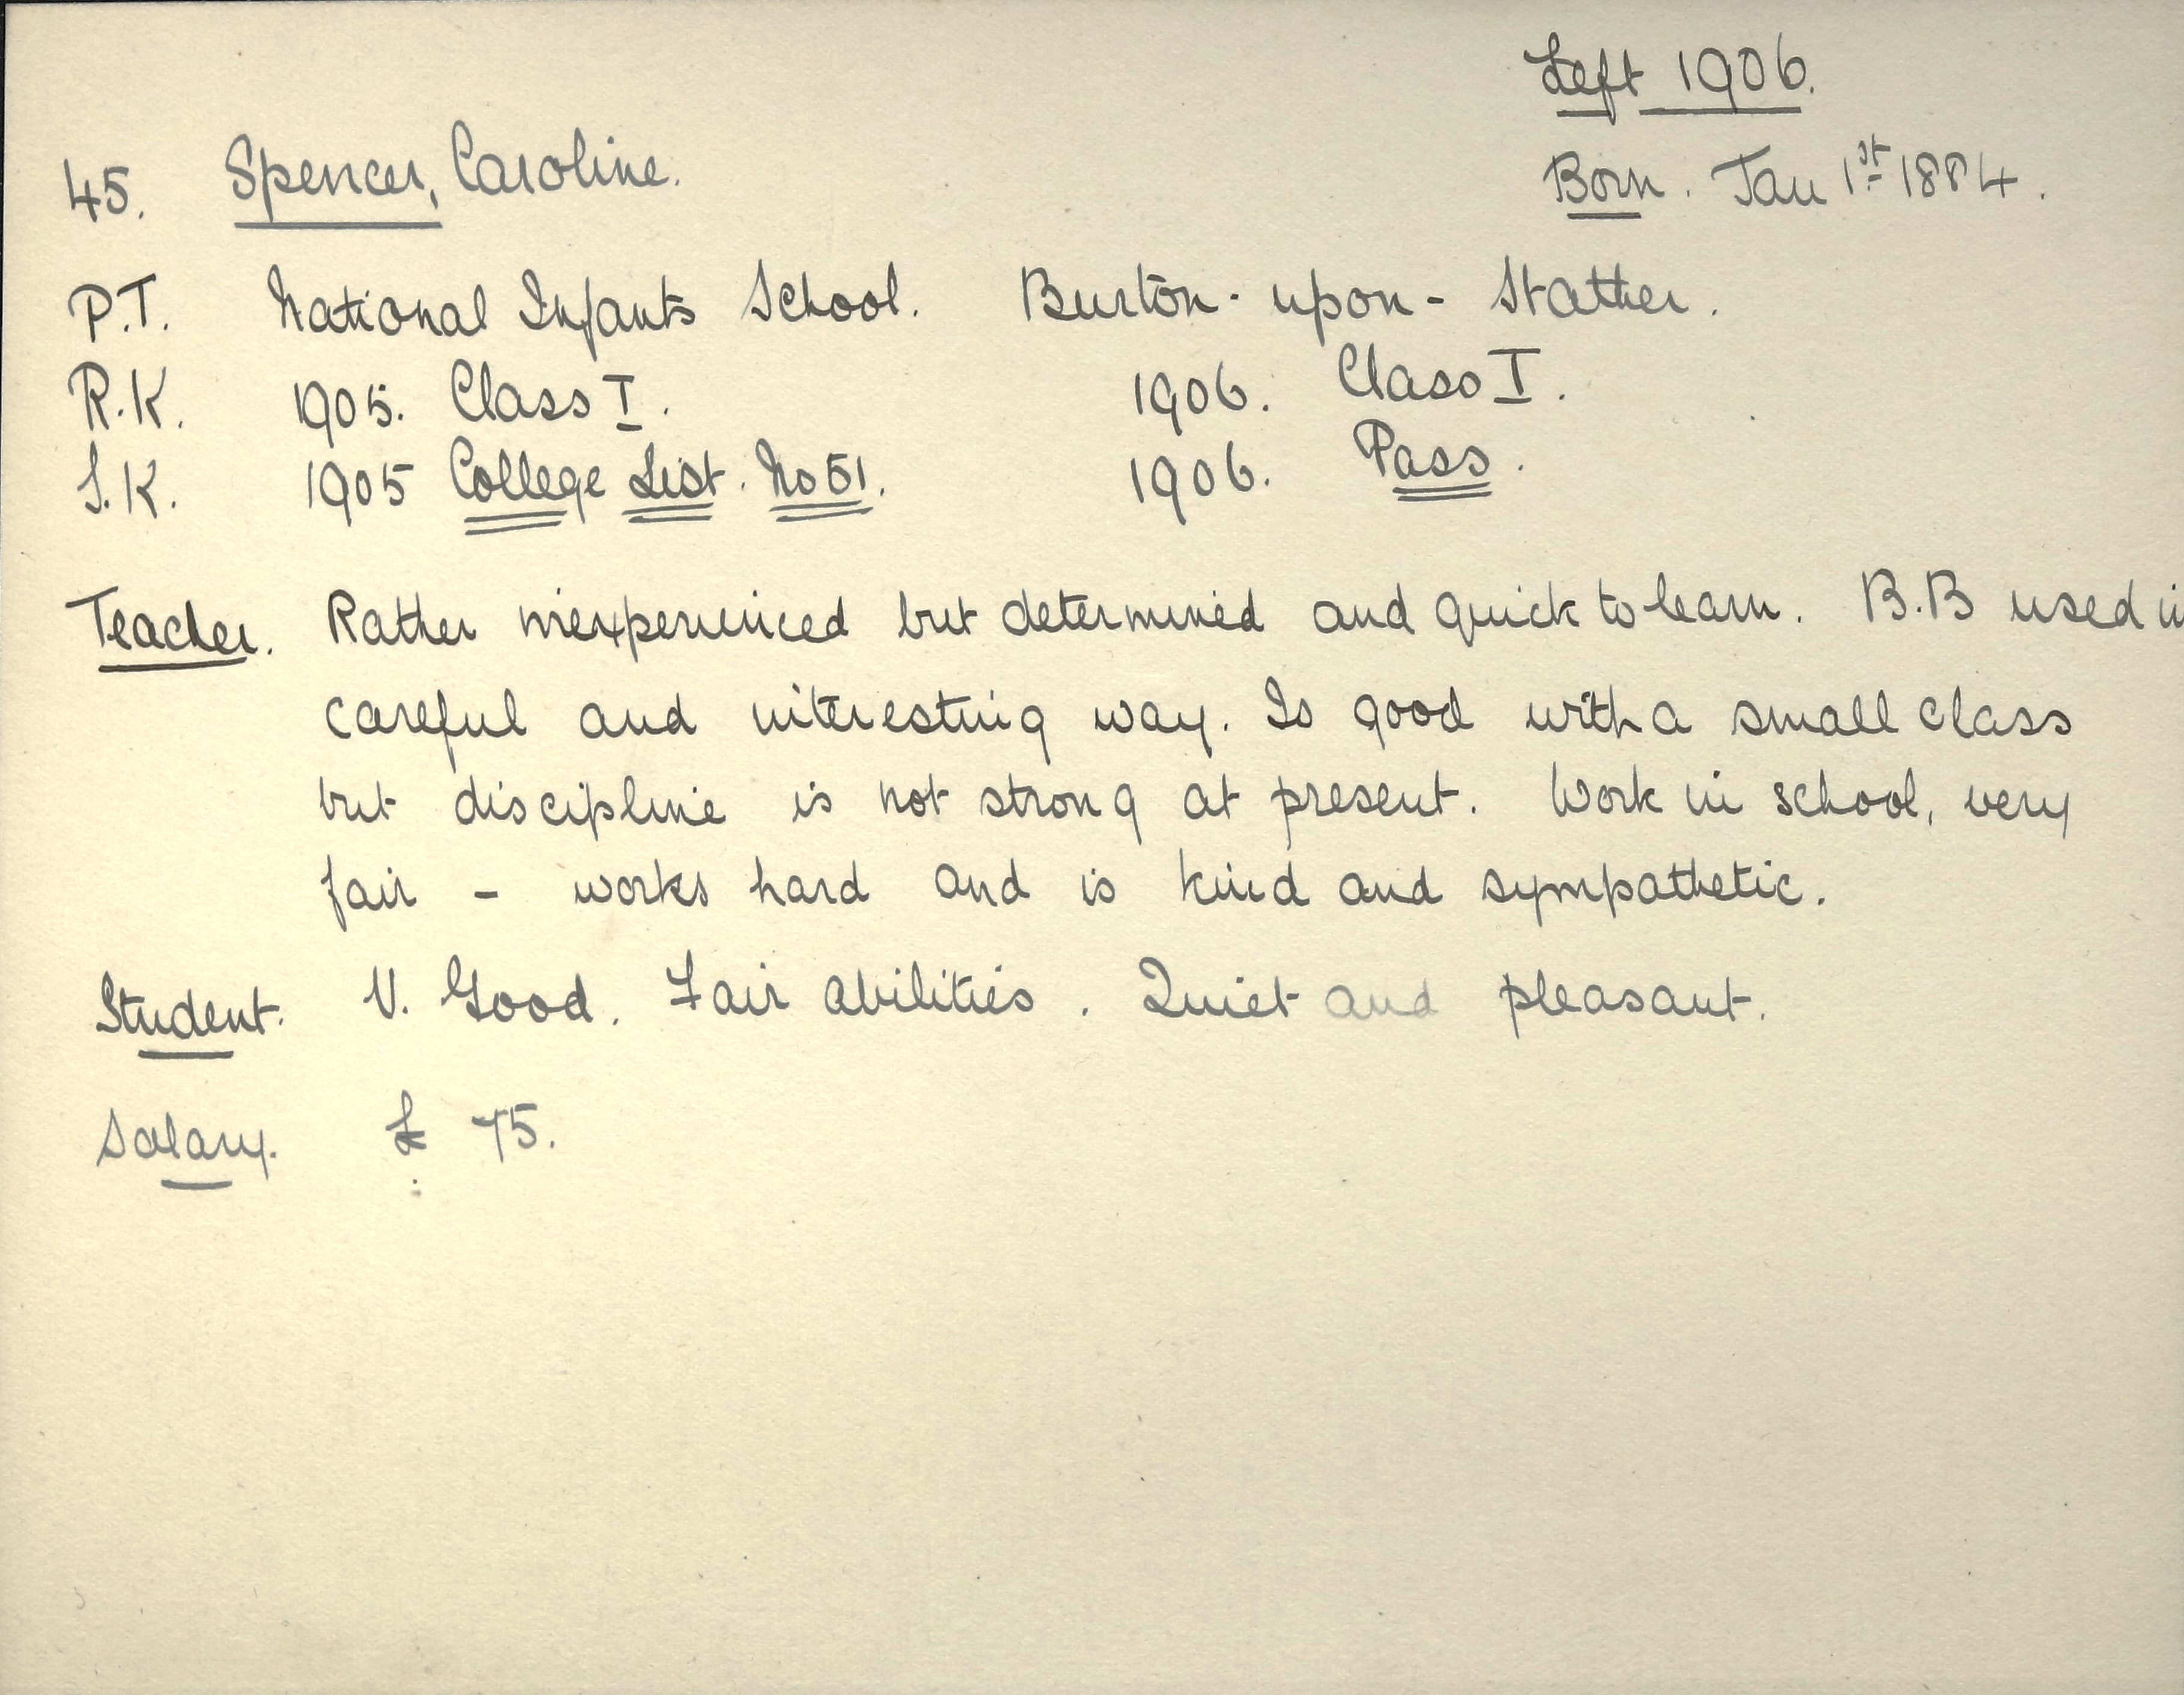 Left 1906.
45. Spencer, Caroline. Born. Jan 1st 1884.
P.T. National Infants School. Burton-upon-Stather.
R.K. 1905. Class I. 1906. Class I.
S.K. 1905 College List. No 51. 1906. Pass.
Teacher. Rather inexperienced but determined and quick to learn. B.B used in
careful and interesting way. Is good with a small class
but discipline is not strong at present. Work in school, very
fair - works hard and is kind and sympathetic.
Student. V. Good. Fair abilities. Quiet and pleasant.
Salary. £ 75.